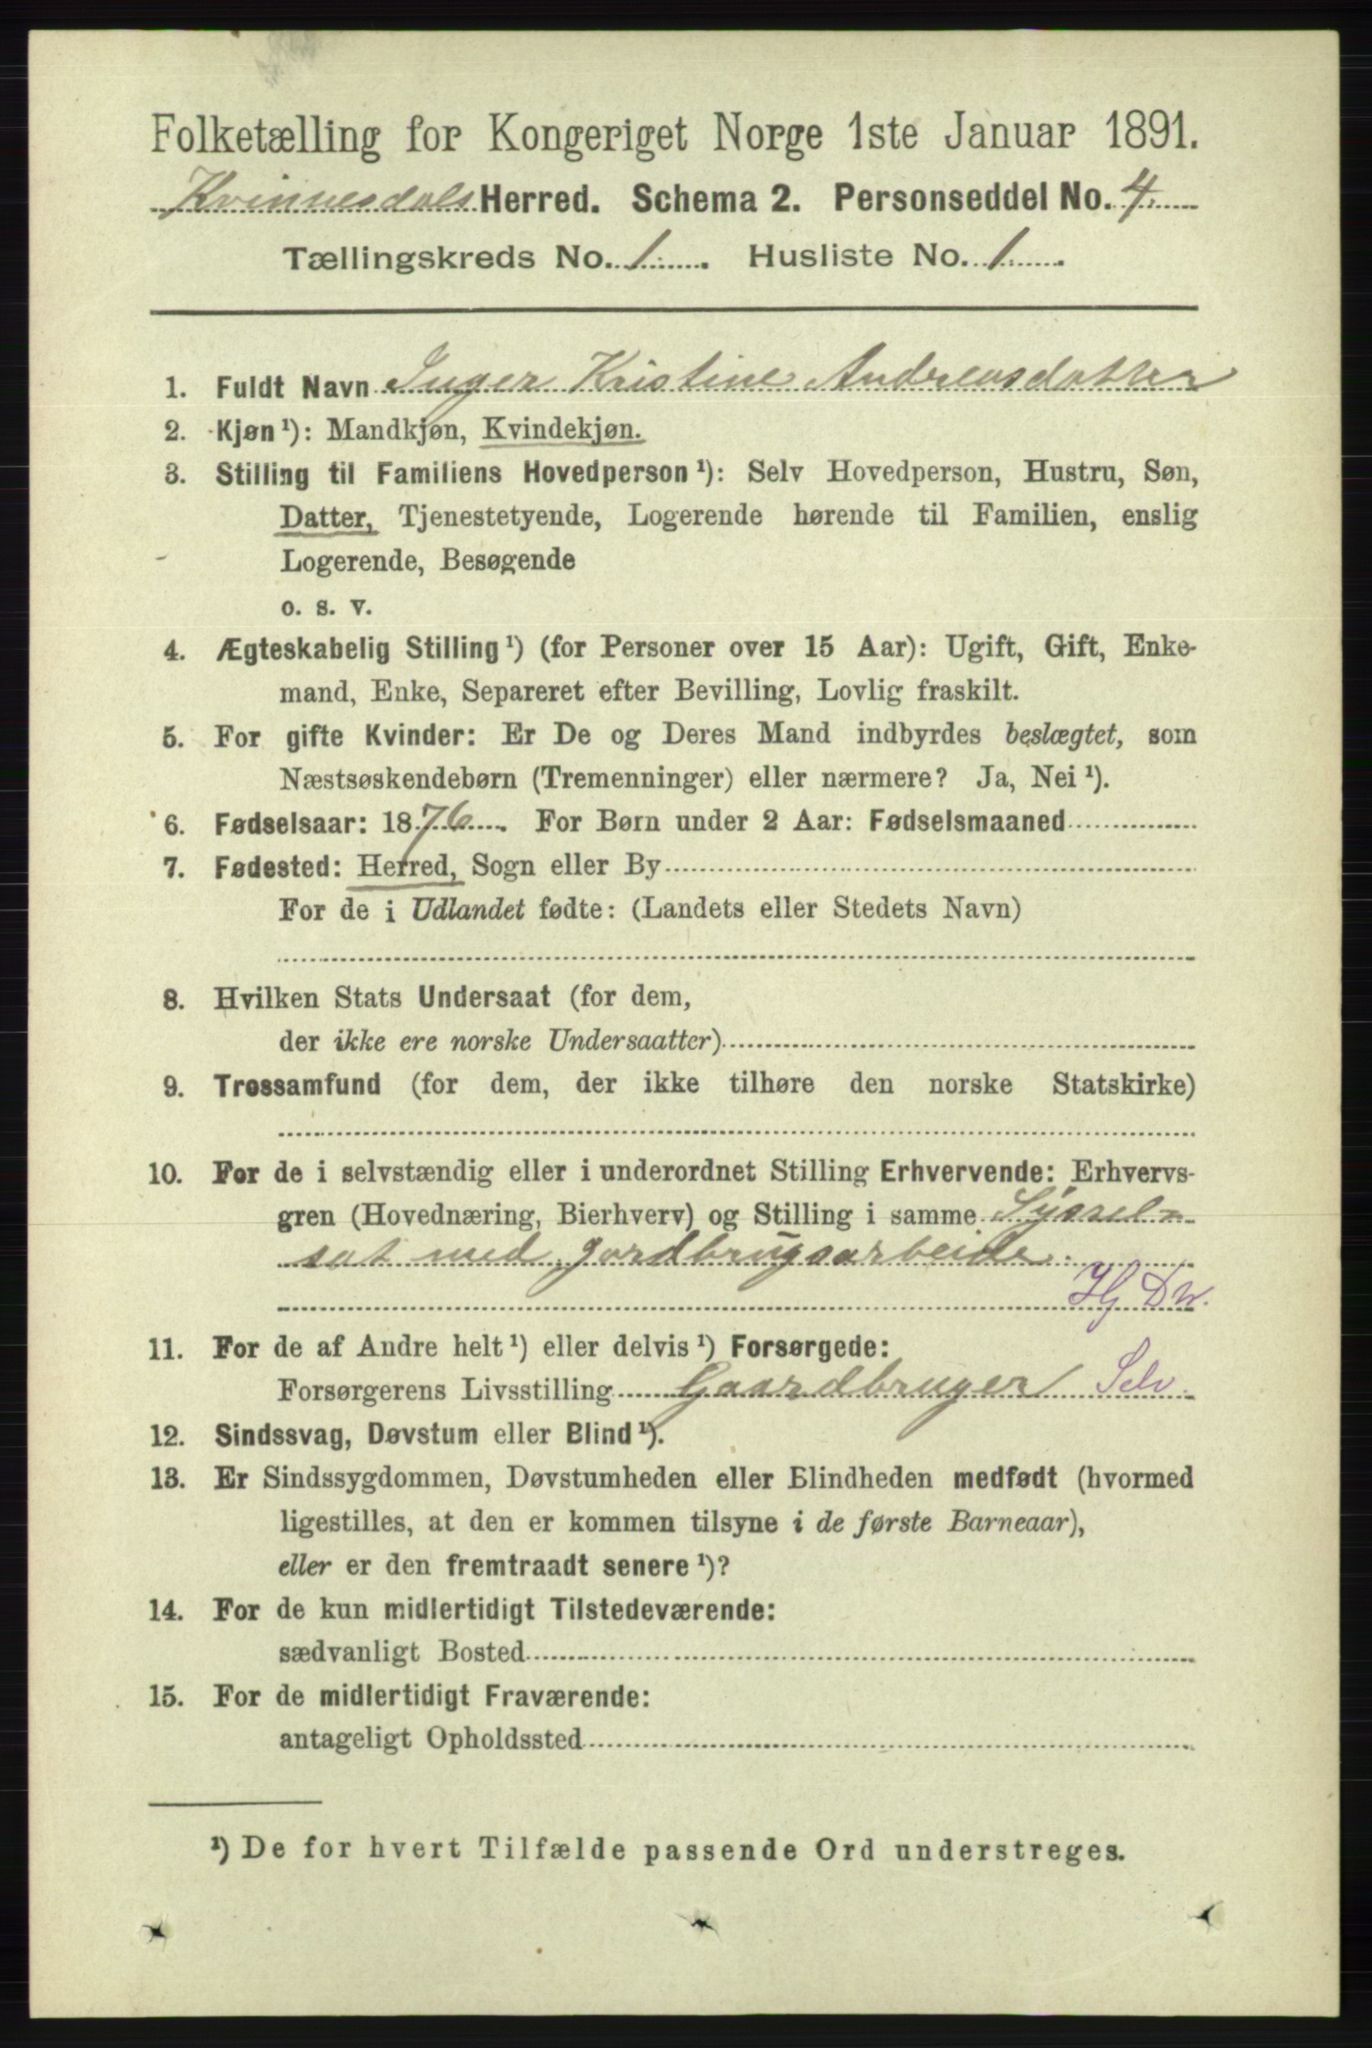 Folketælling for Kongeriget Norge 1ste Januar 1891.
Kvinnesdals Herred. Schema 2. Personseddel No. 4
Tællingskreds No. 1. Husliste No. 1.
1. Fuldt Navn Inger Kristine Andreasdatter
2. Kjøn ¹): Mandkjøn, Kvindekjøn.
3. Stilling til Familiens Hovedperson ¹): Selv Hovedperson, Hustru, Søn,
Datter, Tjenestetyende, Logerende hørende til Familien, enslig
Logerende, Besøgende
o. s. v.
4. Ægteskabelig Stilling ¹) (for Personer over 15 Aar): Ugift, Gift, Enke-
mand, Enke, Separeret efter Bevilling, Lovlig fraskilt.
5. For gifte Kvinder: Er De og Deres Mand indbyrdes beslægtet, som
Næstsøskendebørn (Tremenninger) eller nærmere? Ja, Nei ¹).
6. Fødselsaar: 1876. For Børn under 2 Aar: Fødselsmaaned
7. Fødested: Herred, Sogn eller By
For de i Udlandet fødte: (Landets eller Stedets Navn)
8. Hvilken Stats Undersaat (for dem,
der ikke ere norske Undersaatter)
9. Trossamfund (for dem, der ikke tilhøre den norske Statskirke)
10. For de i selvstændig eller i underordnet Stilling Erhvervende: Erhvervs-
gren (Hovednæring, Bierhverv) og Stilling i samme Syssel-
sat med gardbrugsarbeide.
Hj Dw.
11. For de af Andre helt ¹) eller delvis ¹) Forsørgede:
Forsørgerens Livsstilling Gaardbruger Selv.
12. Sindssvag, Døvstum eller Blind ¹).
13. Er Sindssygdommen, Døvstumheden eller Blindheden medfødt (hvormed
ligestilles, at den er kommen tilsyne i de første Barneaar),
eller er den fremtraadt senere ¹)?
14. For de kun midlertidigt Tilstedeværende:
sædvanligt Bosted
15. For de midlertidigt Fraværende:
antageligt Opholdssted
¹) De for hvert Tilfælde passende Ord understreges.